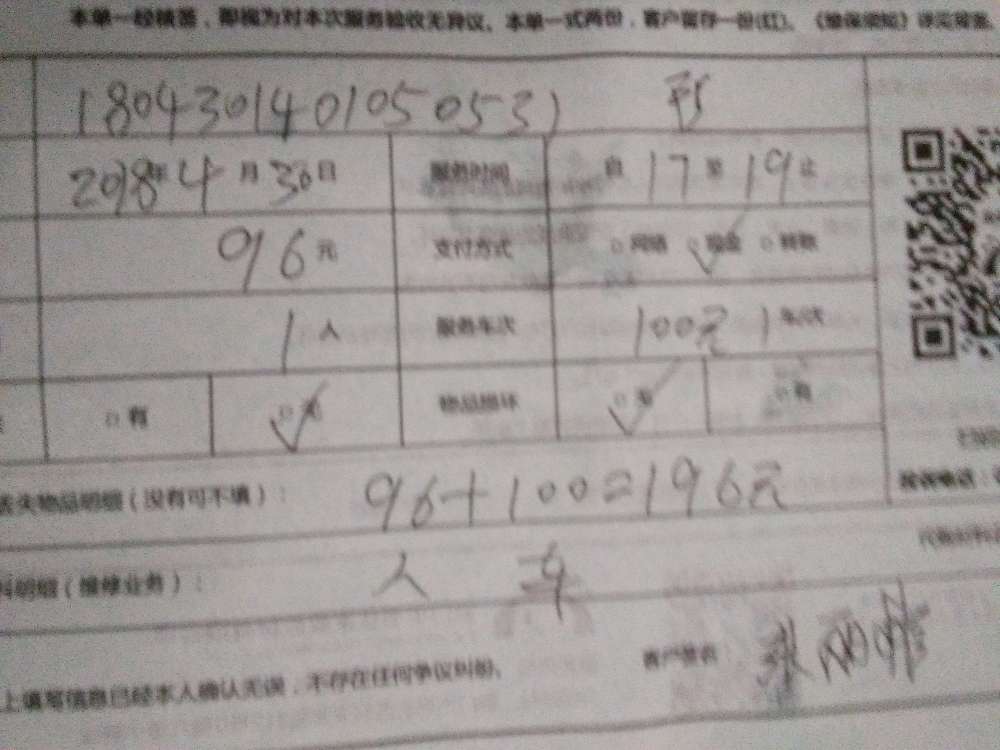 本单一经核签，即视为对本次服务验收无异议。本单一式两份，客户留存一份(红)。《维保须知》详见背面
180430140105053)
2018年4月30日 服务时间 自17至19止
96元 支付方式 网络 现金 转账
1人 服务车次 100元1车/次
有 无 物品损坏 无 有
丢失物品明细（没有可不填）： 96+100=196元
料明细（维修业务）： 人 车
上填写信息已经本人确认无误，不存在任何争议纠纷。 客户签名